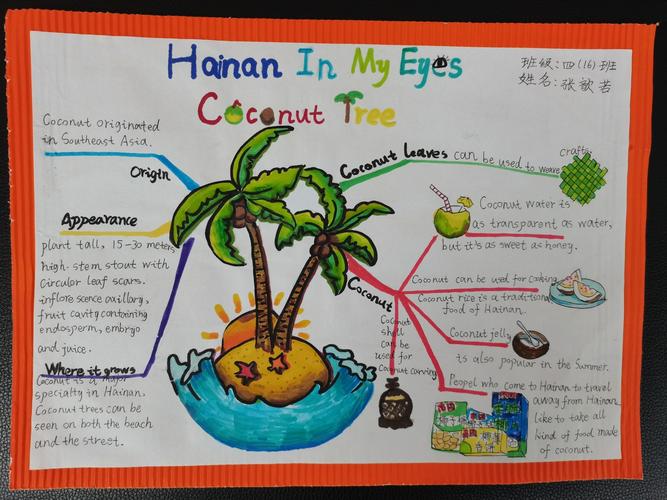 Hainan In My Eyes
班级:四(16)班
姓名:张歆若
Coconut Tree
Coconut originated
in Southeast Asia.
Origin
Appearance
plant tall, 15-30 meters
high. stem stout with
circular leaf scars.
inflore scence axillary,
fruit cavity containing
endosperm, embryo
and juice.
Where it grows
Coconut is a major
specialty in Hainan.
Coconut trees can be
seen on both the beach
and the street.
Coconut leaves can be used to weave
crafts.
Coconut water is
as transparent as water,
but it's as sweet as honey.
Coconut
Coconut can be used for cooking
Coconut rice is a traditional
food of Hainan.
Coconut jelly
is also popular in the Summer.
Coconut
shell
can
be
used for
Coconut carving
Peopel who come to Hainan to travel
away from Hainan
like to take all
kind of food made
of coconut.